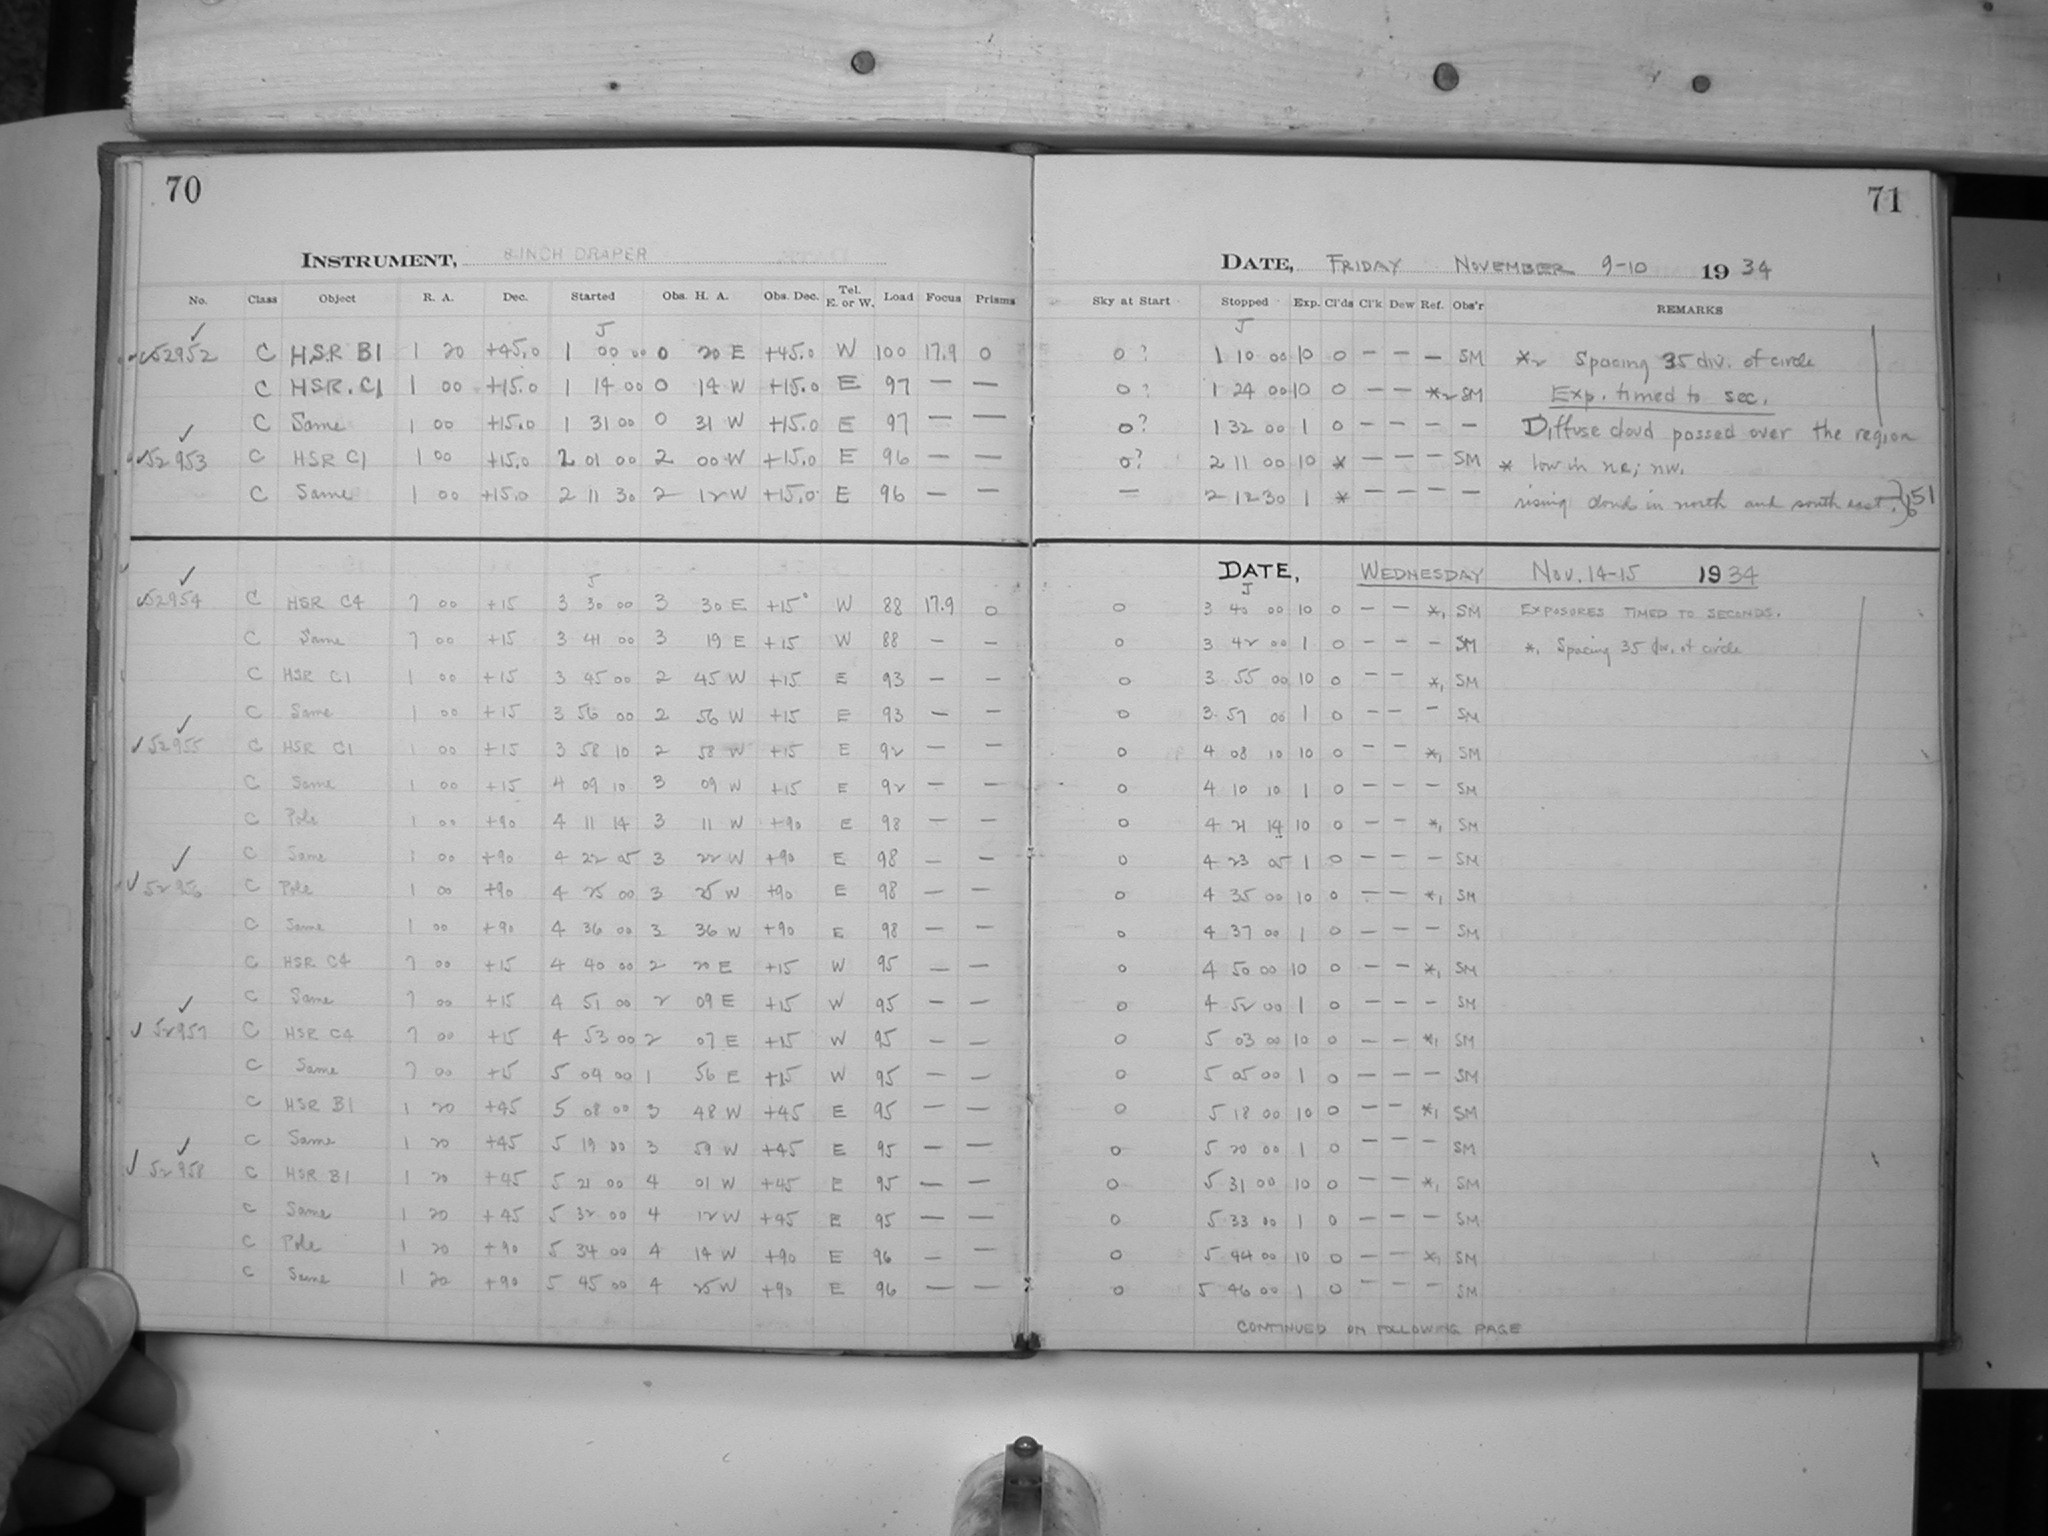 70
71
INSTRUMENT, 8 INCH DRAPER
DATE, FRIDAY NOVEMBER 9-10 1934
No. Class Object R. A. Dec. Started Obs. H. A. Obs. Dec. Tel. E. or W. Load Focus Prisms Sky at Start Stopped Exp. Cl'ds Cl'k Dew Ref. Obs'r REMARKS
J J
✓52952 ✓ C HSR B1 1 20 +45.0 1 00 00 0 20 E +45.0 W 100 17.9 0 0? 1 10 00 10 0 — — — SM *2 Spacing 35 div. of circle
C HSR. C1 1 00 +15.0 1 14 00 0 14 W +15.0 E 97 — — 0? 1 24 00 10 0 — — *2 SM Exp. timed to sec.
C Same 1 00 +15.0 1 31 00 0 31 W +15.0 E 97 — — 0? 1 32 00 1 0 — — — — Diffuse cloud passed over the region
✓52953 ✓ C HSR C1 1 00 +15.0 2 01 00 2 00 W +15.0 E 96 — — 0? 2 11 00 10 * — — — SM * low in ne; nw.
C Same 1 00 +15.0 2 11 30 2 12 W +15.0 E 96 — — — 2 12 30 1 * — — — — rising cloud in north and south east. 51
DATE, WEDNESDAY Nov. 14-15 1934
J J
✓52954 ✓ C HSR C4 7 00 +15 3 30 00 3 30 E +15° W 88 17.9 0 0 3 40 00 10 0 — — *1 SM EXPOSURES TIMED TO SECONDS.
C Same 7 00 +15 3 41 00 3 19 E +15 W 88 — — 0 3 42 00 1 0 — — — SM *1 Spacing 35 div. of circle
C HSR C1 1 00 +15 3 45 00 2 45 W +15 E 93 — — 0 3 55 00 10 0 — — *1 SM
C Same 1 00 +15 3 56 00 2 56 W +15 E 93 — — 0 3 57 00 1 0 — — — SM
✓52955 ✓ C HSR C1 1 00 +15 3 58 10 2 58 W +15 E 92 — — 0 4 08 10 10 0 — — *1 SM
C Same 1 00 +15 4 09 10 3 09 W +15 E 92 — — 0 4 10 10 1 0 — — — SM
C Pole 1 00 +90 4 11 14 3 11 W +90 E 98 — — 0 4 21 14 10 0 — — *1 SM
C Same 1 00 +90 4 22 05 3 22 W +90 E 98 — — 0 4 23 05 1 0 — — — SM
✓52956 ✓ C Pole 1 00 +90 4 25 00 3 25 W +90 E 98 — — 0 4 35 00 10 0 — — *1 SM
C Same 1 00 +90 4 36 00 3 36 W +90 E 98 — — 0 4 37 00 1 0 — — — SM
C HSR C4 7 00 +15 4 40 00 2 20 E +15 W 95 — — 0 4 50 00 10 0 — — *1 SM
C Same 7 00 +15 4 51 00 2 09 E +15 W 95 — — 0 4 52 00 1 0 — — — SM
✓52957 ✓ C HSR C4 7 00 +15 4 53 00 2 07 E +15 W 95 — — 0 5 03 00 10 0 — — *1 SM
C Same 7 00 +15 5 04 00 1 56 E +15 W 95 — — 0 5 05 00 1 0 — — — SM
C HSR B1 1 20 +45 5 08 00 3 48 W +45 E 95 — — 0 5 18 00 10 0 — — *1 SM
C Same 1 20 +45 5 19 00 3 59 W +45 E 95 — — 0 5 20 00 1 0 — — — SM
✓52958 ✓ C HSR B1 1 20 +45 5 21 00 4 01 W +45 E 95 — — 0 5 31 00 10 0 — — *1 SM
C Same 1 20 +45 5 32 00 4 12 W +45 E 95 — — 0 5 33 00 1 0 — — — SM
C Pole 1 20 +90 5 34 00 4 14 W +90 E 96 — — 0 5 44 00 10 0 — — *1 SM
C Same 1 20 +90 5 45 00 4 25 W +90 E 96 — — 0 5 46 00 1 0 — — — SM
CONTINUED ON FOLLOWING PAGE